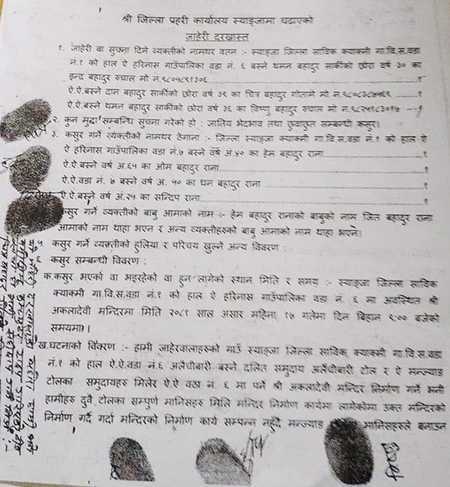 श्री जिल्ला प्रहरी कार्यालय स्याङ्जामा चढाएको
जाहेरी दरखास्त
१. जाहेरी वा सुचना दिने व्यक्तीको नामथर वतन :- स्याङ्जा जिल्ला साविक क्याक्मी गा.वि.स.वडा
नं.१ को हाल ऐ हरिनास गाउँपालिका वडा नं. ६ बस्ने थमन बहादुर सार्कीको छोरा वर्ष ३० का
इन्द्र बहादुर रुचाल मो नं.
ऐ.ऐ.बस्ने दान बहादुर सार्कीको छोरा वर्ष ३९ का चित्र बहादुर गोतामे मो नं.
ऐ.ऐ.बस्ने थमन बहादुर सार्कीको छोरा वर्ष ३६ का विष्णु बहादुर रुचाल मो नं.
२. कुन मुद्दा सम्बन्धि सुचना गरेको हो : जातिय भेदभाव तथा छुवाछुत सम्बन्धी कसुर।
३. कसुर गर्ने व्यक्तीको नामथर ठेगाना :- स्याङ्जा जिल्ला साविक क्याक्मी गा.वि.स.वडा नं.१ को हाल ऐ
ऐ हरिनास गाउँपालिका वडा नं.७ बस्ने वर्ष अं.४० का हेम बहादुर राना १
ऐ.ऐ.बस्ने वर्ष अं.६५ का ओम बहादुर राना १
ऐ.ऐ.वडा नं. ७ बस्ने वर्ष अं. ५० का धन बहादुर राना १
ऐ.ऐ.बस्ने वर्ष अं.२५ का सन्दिप राना १
कसुर गर्ने व्यक्तीको बाबु आमाको नाम :- हेम बहादुर रानाको बाबुको नाम जित बहादुर राना
आमाको नाम थाहा भएन र अन्य व्यक्तीहरुको बाबु आमाको नाम थाहा भएन।
कसुर गर्ने व्यक्तीको हुलिया र परिचय खुल्ने अन्य विवरण :
कसुर सम्बन्धी विवरण :
क.कसुर भएको वा भइरहेको वा हुन लागेको स्थान मिति र समय :- स्याङ्जा जिल्ला साविक
क्याक्मी गा.वि.स.वडा नं.१ को हाल ऐ हरिनास गाउँपालिका वडा नं. ६ मा अवस्थित श्री
अकलादेवी मन्दिरमा मिति २०८१ साल असार महिना १७ गतेमा दिन बिहान ९:०० बजेको
समयमा।
ख.घटनाको विवरण :- हामी जाहेरवालाहरुको गाउँ स्याङ्जा जिल्ला साविक क्याक्मी गा.वि.स.वडा
नं.१ को हाल ऐ.ऐ.वडा नं.६ अलैचीबारी बस्ने दलित समुदाय अलैचीबारी टोल र ऐ मन्ज्याङ
टोलका समुदायहरु मिलेर ऐ.ऐ वडा नं. ६ मा पर्ने श्री अकलादेवी मन्दिर निर्माण गर्ने भनी
हामीहरु दुवै टोलका सम्पुर्ण मानिसहरु मिलि मन्दिर निर्माण कार्यमा लागेकोमा उक्त मन्दिरको
निर्माण गर्दै गर्दा मन्दिरको निर्माण कार्य सम्पन्न नहुँदै मन्ज्याङ मानिसहरुले बनाउन